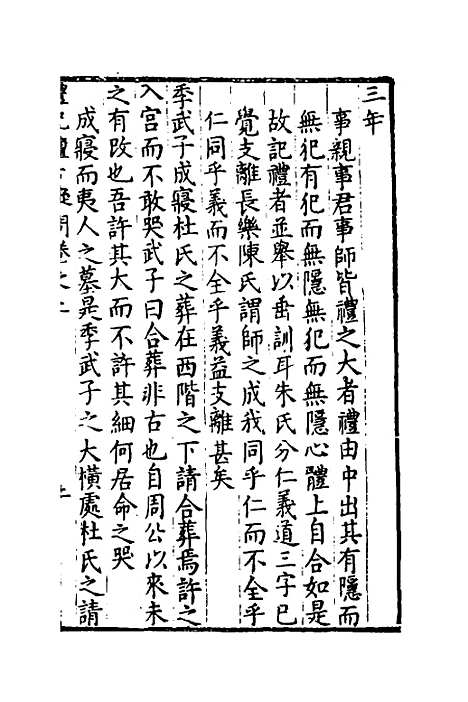 三年
事親事君事師皆禮之大者禮由中出其有隱而
無犯有犯而無隱無犯而無隱心體上自合如是
故記禮者並舉以垂訓耳朱氏分仁義道三字已
覺支離長樂陳氏謂師之成我同乎仁而不全乎
仁同乎義而不全乎義益支離甚矣
季武子成寢杜氏之葬在西階之下請合葬焉許之
入宮而不敢哭武子曰合葬非古也自周公以來未
之有改也吾許其大而不許其細何居命之哭
成寢而夷人之墓是季武子之大橫處杜氏之請
禮記檀弓疑問卷之上